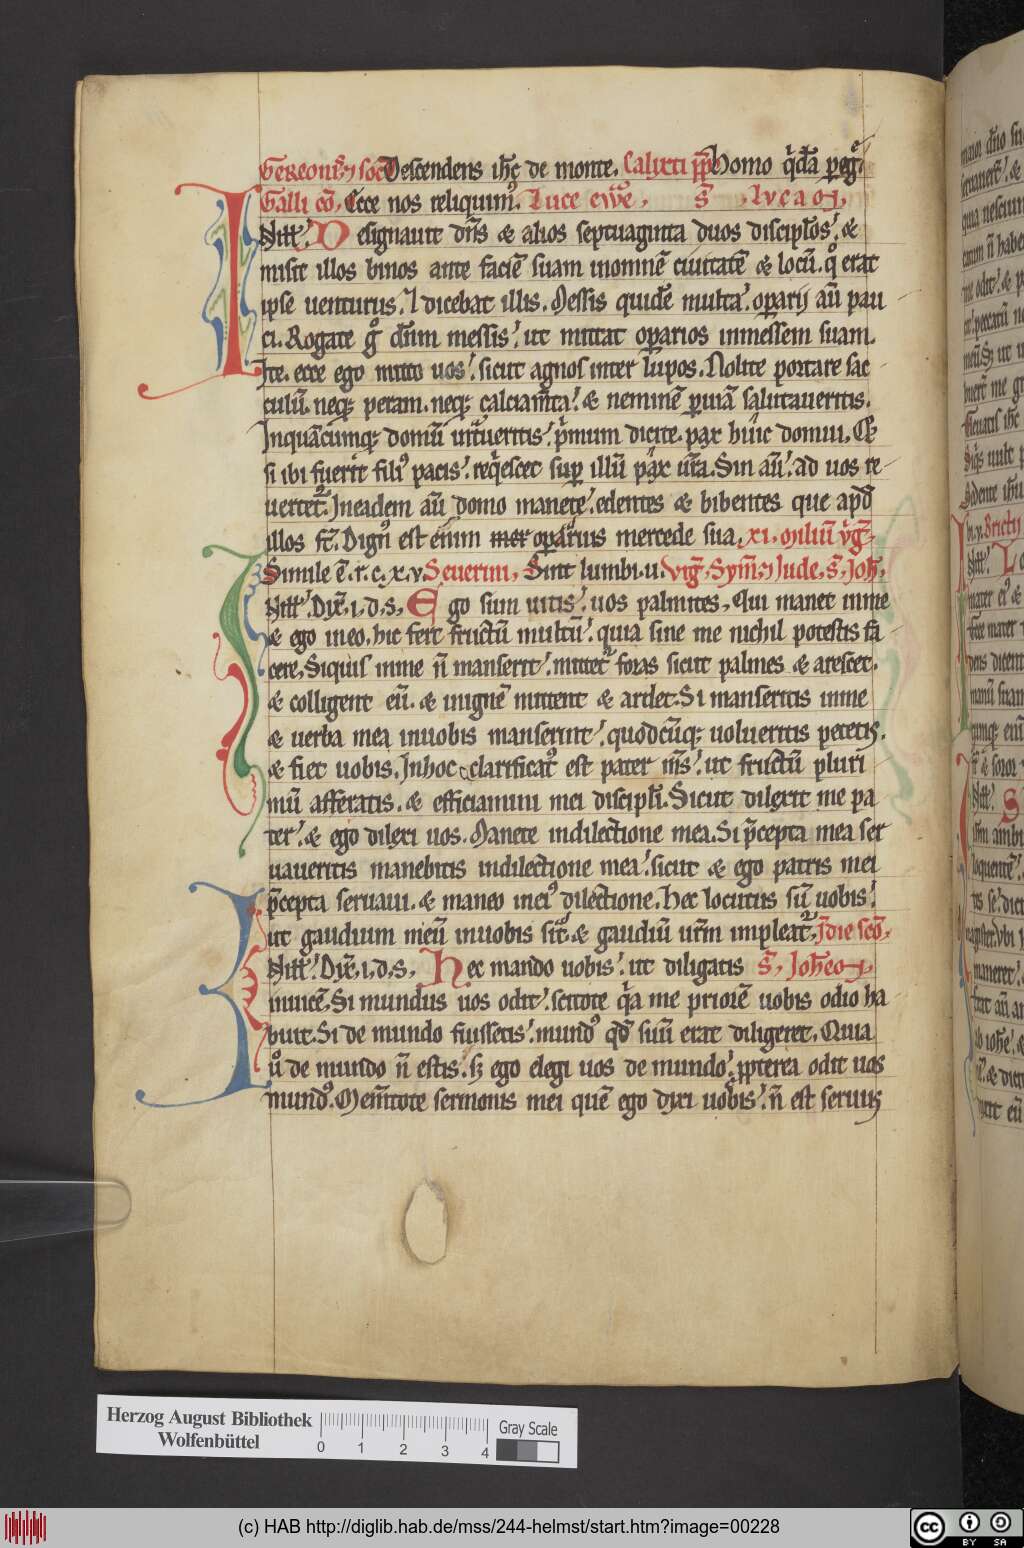 Gereonis ⁊ soc̄ Descendens ih̄c de monte. Calixti pp̄ Homo q̇dā pegͤ.
Galli cō. Ecce nos reliquimꝰ. Luce ewē. S̄. Lucaͫ.
N ill'. Designauit dn̄s ⁊ alios septuaginta duos discipl̄os. ⁊
misit illos binos ante faciē suam inomnē ciuitatē ⁊ locū. q̊ erat
ipse uenturus. ⁊ dicebat illis. Messis quidē multa. oꝑarij aū pau
ci. Rogate g̊ dn̄m messis. ut mittat oꝑarios inmessem suam.
Ite. ecce ego mitto uos. sicut agnos inter lupos. Nolite portare sac
culū. neqꝫ peram. neqꝫ calciam̄ta. ⁊ neminē ꝑuiā salutaueritis.
Inquācumqꝫ domū int̄ueritis. p̄mum dicite. pax huic domui. Et
si ibi fuerit filiꝰ pacis. req̇escet suꝑ illū pax ur̄a. Sin aū. ad uos re
uertet᷑. Ineadem aū domo manete. edentes ⁊ bibentes que apd̄
illos st̄. Dignꝰ est enim mer oꝑarius mercede sua. xi. miliū v̇gͣ.
Simile ē. r. c. x. v. Seuerini. Sint lumbi. u. Vigͣ. Sym̄. ⁊ Jude. s̄. Joh̄.
N ill'. Dix̄. i. d. s. Ego sum uitis. uos palmites. Qui manet inme
⁊ ego ineo. hic fert fructū multū. quia sine me nichil potestis fa
cere. Siquis inme n̄ manserit. mittet᷑ foras sicut palmes ⁊ arescet.
⁊ colligent eū. ⁊ inignē mittent ⁊ ardet. Si manseritis inme
⁊ uerba mea inuobis manserint. quodcūqꝫ uolueritis petetis.
⁊ fiet uobis. Inhoc clarificatꝰ est pater m̄s. ut fructū pluri
mū afferatis. ⁊ efficiamini mei discipl̄i. Sicut dilexit me pa
ter. ⁊ ego dilexi uos. Manete indilectione mea. Si p̄cepta mea ser
uaueritis manebitis indilectione mea. sicut ⁊ ego patris mei
p̄cepta seruaui. ⁊ maneo ineiꝰ dilectione. Hec locutus sū uobis.
ut gaudium meū inuobis sit. ⁊ gaudiū ur̄m impleat᷑. Jn̄ die scō.
N ill'. Dix̄. i. d. s. Hec mando uobis. ut diligatis S̄. Joh̄em.
inuicē. Si mundus uos odit. scitote q̇a me priorē uobis odio ha
buit. Si de mundo fuissetis. mundꝰ qd̄ suū erat diligeret. Quia
ů de mundo n̄ estis. sꝫ ego elegi uos de mundo. ꝓpterea odit uos
mundꝰ. Mem̄tote sermonis mei quē ego dixi uobis. n̄ est seruus
Herzog August Bibliothek
Wolfenbüttel
0 1 2 3 4
Gray Scale
(c) HAB http://diglib.hab.de/mss/244-helmst/start.htm?image=00228
cc BY SA